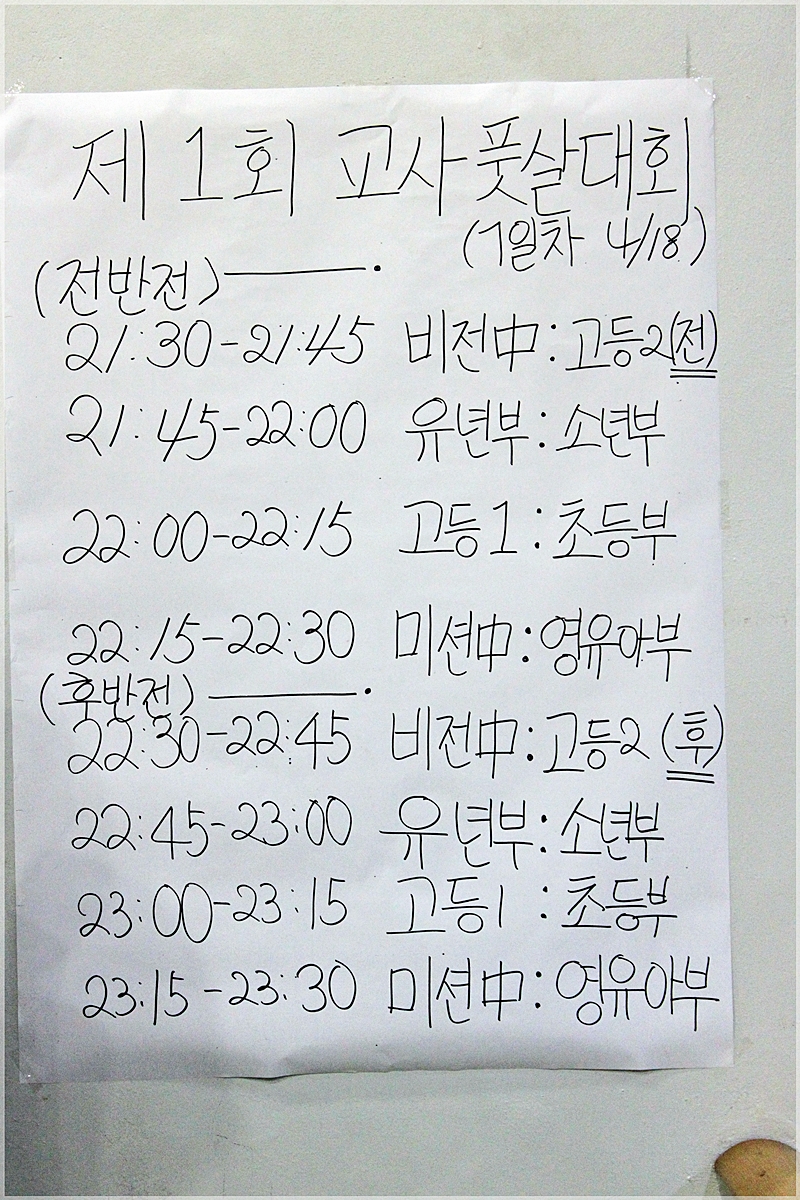 제 1회 교사풋살대회
(1일차 4/18)
(전반전)
21:30-21:45 비전中:고등2(전)
21:45-22:00 유년부:소년부
22:00-22:15 고등1:초등부
22:15-22:30 미션中:영유아부
(후반전)
22:30-22:45 비전中:고등2 (후)
22:45-23:00 유년부:소년부
23:00-23:15 고등1 :초등부
23:15-23:30 미션中:영유아부